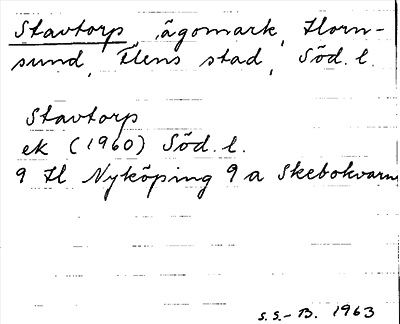 Stavtorp, ägomark, Horn-
sund, Flens stad, Söd. l.
Stavtorp
ek (1960) Söd. l.
9 H Nyköping 9 a Skebokvarn
S.S.-B. 1963